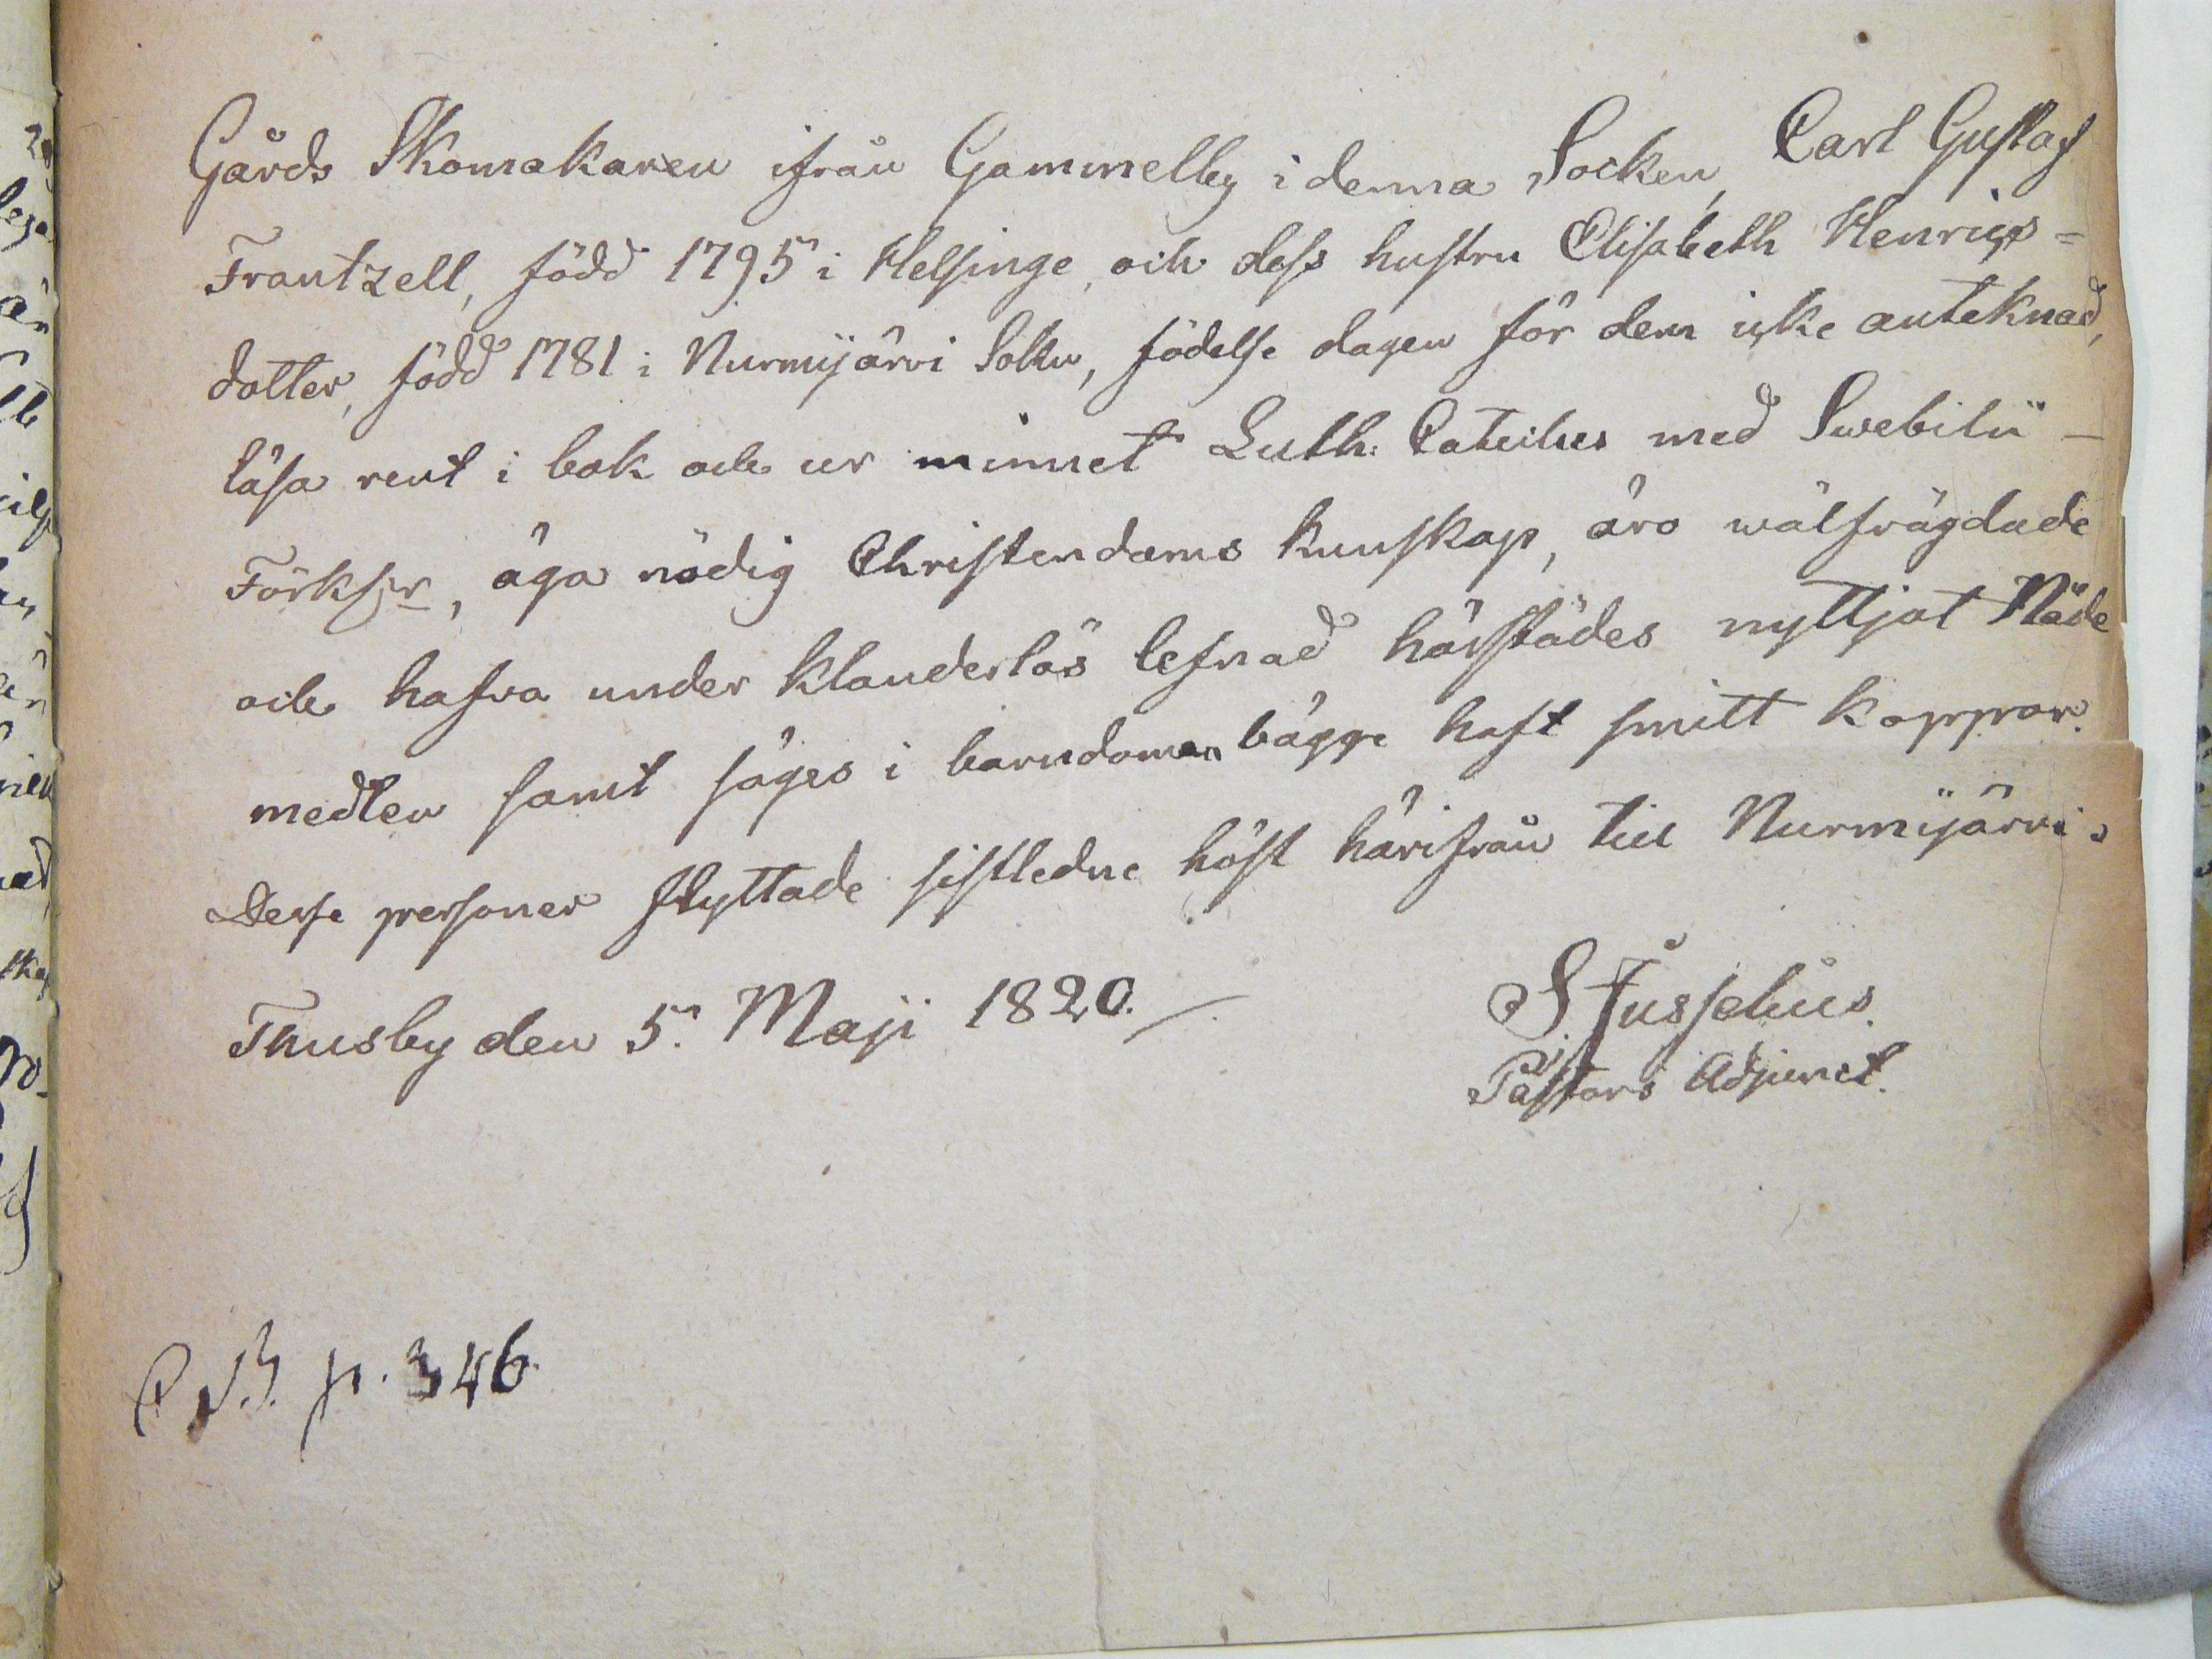 Gårds Skomakaren ifrån Gammelby i denna Socken, Carl Gustaf
Frantzell, född 1795 i Helsinge, och dess hustru Elisabeth Henrics=
dotter, född 1781 i Nurmijärvi Sokn, födelse dagen för dem icke anteknad,
läsa rent i bok och ur minnet Luth: Cateches med Swebilii
Förklr, äga nödig Christendoms kunskap, äro wälfrägdade
och hafva under klanderlös lefnad härstädes nyttjat Nåde
medlen samt säges i barndomen bägge haft smitt koppor.
Desse personer flyttade sistledne höst härifrån till Nurmijärvi.
Thusby den 5. Maji 1820.
Pastors Adjunct.
p. 346